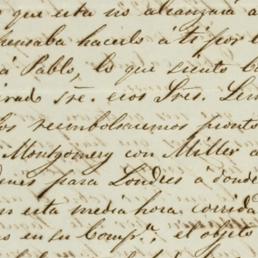 que esta no alcanzará a
pensaba hacerlo a ti por el
á Pablo, lo que siento
Sre. esos Sres.
los reembolsaremos pronto
Montgomery con Miller a
para Londres a donde
en esta media hora corrida
en su Comp.ª, el objeto